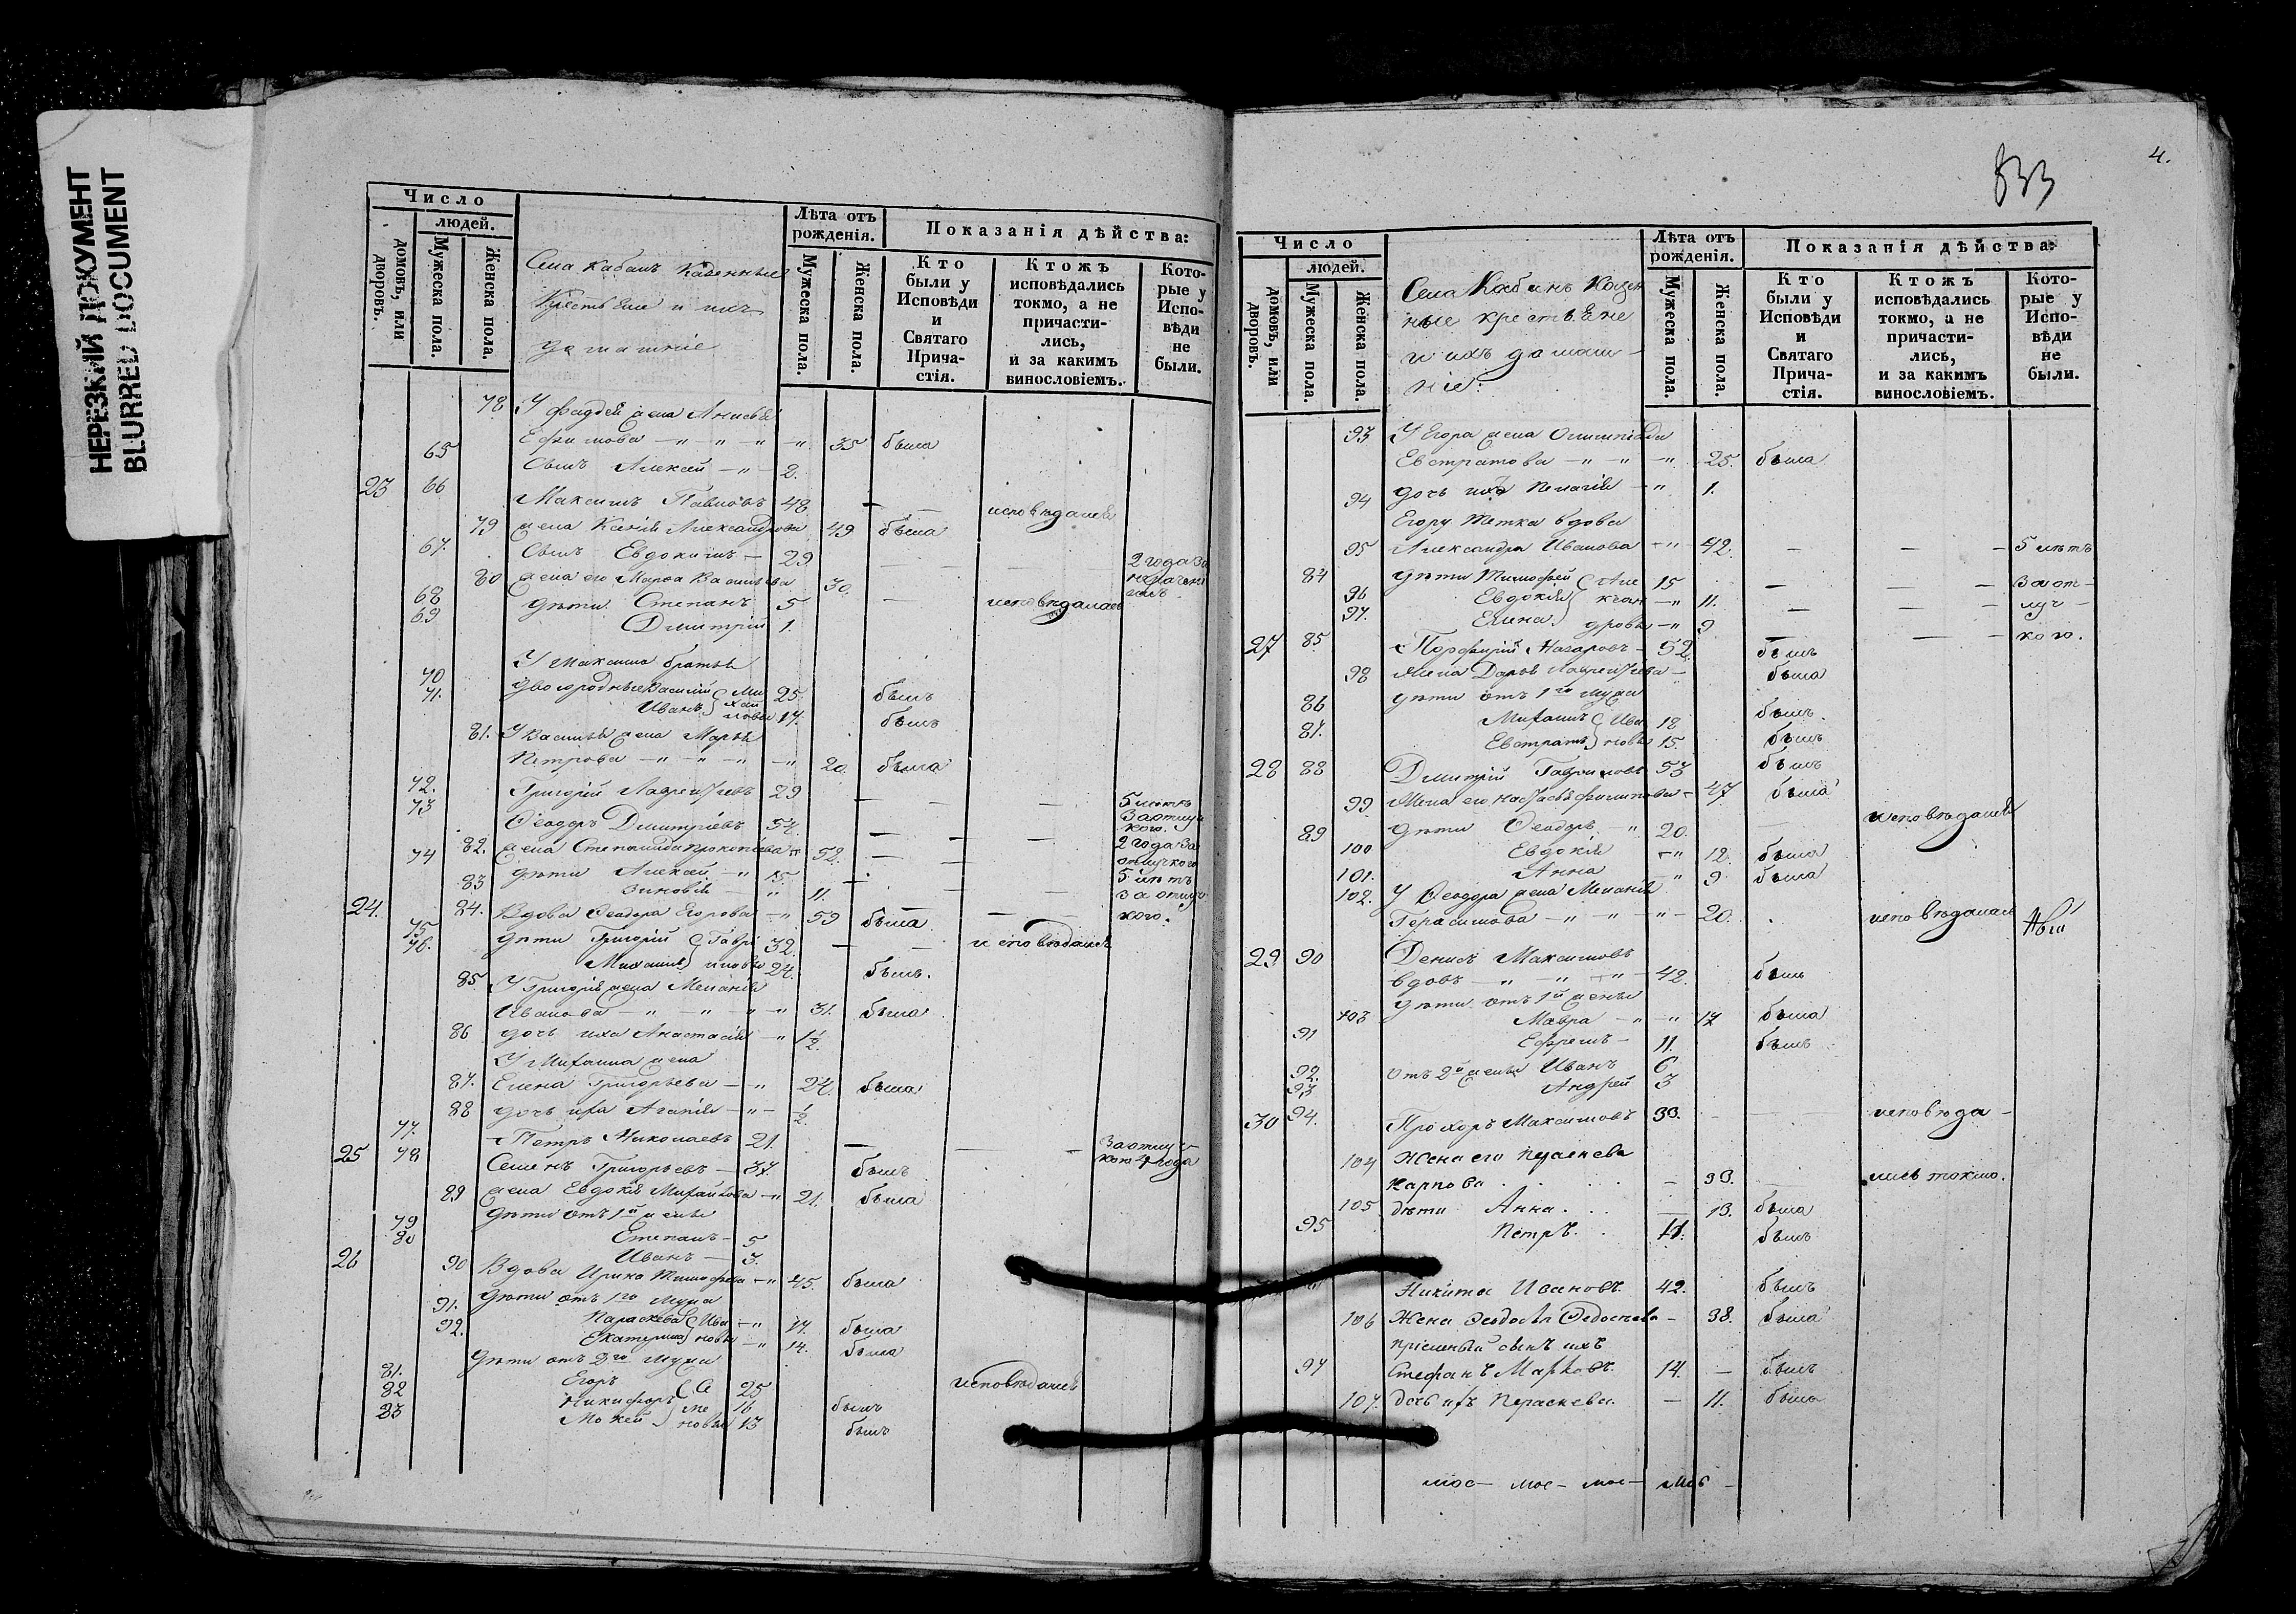 НЕРЕЗКИЙ ДОКУМЕНТ
BLURRED DOCUMENT
Число
людей.
домовъ, или дворовъ.
Мужеска пола.
Женска пола.
Села Кабанъ Казенные
Крестьяне и ихъ
домашніе
Лѣта отъ рожденія.
Мужеска пола.
Женска пола.
Показанія дѣйства:
Кто были у Исповѣди и Святаго Прича-стія.
Ктожъ исповѣдались токмо, а не причасти-лись, и за какимъ винословіемъ.
Кото-рые у Испо-вѣди не были.
78 У Фаддея жена Анисья
Ефимова — " — " — " 35 была
65 Сынъ Алексей — " 2.
23 66 Максимъ Павловъ 48 — — исповѣдался
79 жена Ксенія Александрова 49 была
67. Сынъ Евдокимъ — 29 — — — 2 года за
80 жена его Марфа Васильева 30. — исповѣдалась
68 дѣти Степанъ 5
69 Димитрій 1.
У Максима братья
70 двоюродные Василій Ми 25. былъ
71. Иванъ хай ловы 17. былъ
81. У Василья жена Марья
Петрова — " — " — " 20. была
72. Григорій Лаврентьевъ 29 — — — 5 лѣтъ
за отлуч
кою.
73 Феодоръ Димитріевъ 54. — — 2 года за
82. жена Степанида Прокопьева " 52. — — отлучкою
74 дѣти Алексей — " 15. — 5 лѣтъ
83 Зиновія — " 11. — — за отлуч
кою.
24. 84. Вдова Феодора Егорова — " 59 была
75 дѣти Григорій Гаври 32. — — исповѣдался
76. Михаилъ иловы 24. былъ.
85 У Григорія жена Меланія
Иванова — " — " — " 31. была
86 дочь ихъ Анастасія — " 1 1/2.
У Михаила жена
87. Елена Григорьева — " 24. была
88 дочь ихъ Агапія — " — 1/2.
77. Петръ Николаевъ 21. — — — За отлуч
кою 4 года
25 78 Семенъ Григорьевъ — 37. былъ
89 жена Евдокія Михайлова — " 21. была
дѣти отъ 1й жены
79 Степанъ — 5
80 Иванъ — 3.
26 90 Вдова Ирина Тимофеева — " 45. была
дѣти отъ 1го мужа
91. Параскева Ива — " 17. была
92. Екатерина новы — " 14. была
дѣти отъ 2го мужа
81. Егоръ Се 25 исповѣдался
82 Никифоръ ме 16 былъ
83 Мокей новы 13 былъ
4.
833
Число
людей.
домовъ, или дворовъ.
Мужеска пола.
Женска пола.
Села Кабанъ Казен
ные крестьяне
и ихъ домаш —
ніе:
Лѣта отъ рожденія.
Мужеска пола.
Женска пола.
Показанія дѣйства:
Кто были у Исповѣди и Святаго Прича-стія.
Ктожъ исповѣдались токмо, а не причасти-лись, и за какимъ винословіемъ.
Кото-рые у Испо-вѣди не были.
93 У Егора жена Олимпіада
Евстратова — " — " — " 25. была
94 дочь ихъ Пелагія — " 1.
Егору тетка вдова
95 Александра Иванова — " 42. — — — 5 лѣтъ
84 дѣти Тимофей Але 15 — — за от —
96 Евдокія ксан — " 11. — — — луч —
97. Елена дровы — " 9 — — кою.
27 85 Порфирій Назаровъ — 52. былъ
98 Жена Дарья Лаврентьева — была
дѣти отъ 1го мужа
86 Михаилъ Ива 18 былъ.
87. Евстратъ новы 15. былъ
28 88 Димитрій Гавриловъ 53 былъ
99 Жена его Настасья Филипова — 47 была
89 дѣти Феодоръ — " 20. — исповѣдался
100 Евдокія — " 12. была
101. Анна — " 9 была
102. У Феодора жена Меланія
Герасимова — " — " — " — 20. исповѣдалась
29 90 Денисъ Максимовъ
вдовъ — " — " — " — 42. былъ
дѣти отъ 1й жены
103 Мавра — " — " 17 была
91 Ефремъ — 11. былъ
92. отъ 2й жены Иванъ 6
93 Андрей 3
30 94. Прохоръ Максимовъ 39. — — исповѣда —
104 Жена его Параскева
Карпова . . . . — 39. — лись токмо.
105 дѣти Анна. . . — 13. была
95 Петръ. . 11. былъ
Никита Ивановъ. 42. былъ
106 Жена Феодосья Федосеева — 38. была
пріемный сынъ ихъ
97 Стефанъ Марковъ. 14. — былъ
107. дочь ихъ Параскева. — 11. была